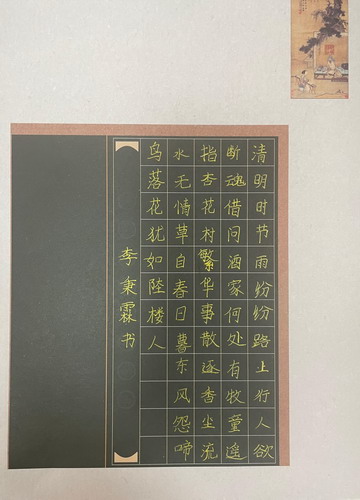 清明时节雨纷纷路上行人欲
断魂借问酒家何处有牧童遥
指杏花村繁华事散逐香尘流
水无情草自春日暮东风怨啼
鸟落花犹如陸楼人
李秉霖书